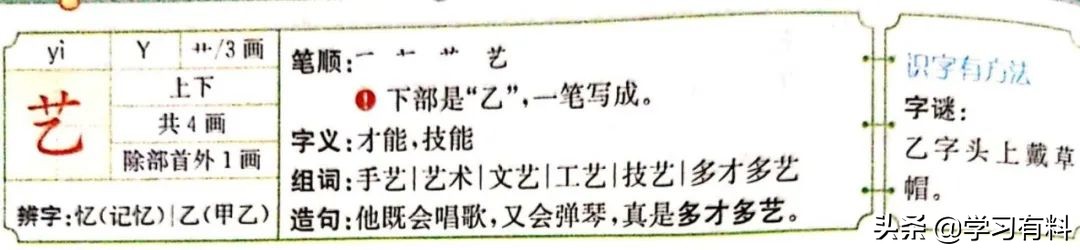 yì Y 艹/3画
艺
上下
共4画
除部首外1画
辨字:忆(记忆)|乙(甲乙)
笔顺:一 十 艹 艺
下部是“乙”,一笔写成。
字义:才能,技能
组词:手艺|艺术|文艺|工艺|技艺|多才多艺
造句:他既会唱歌,又会弹琴,真是多才多艺。
识字有方法
字谜:
乙字头上戴草
帽。
头条@学习有料